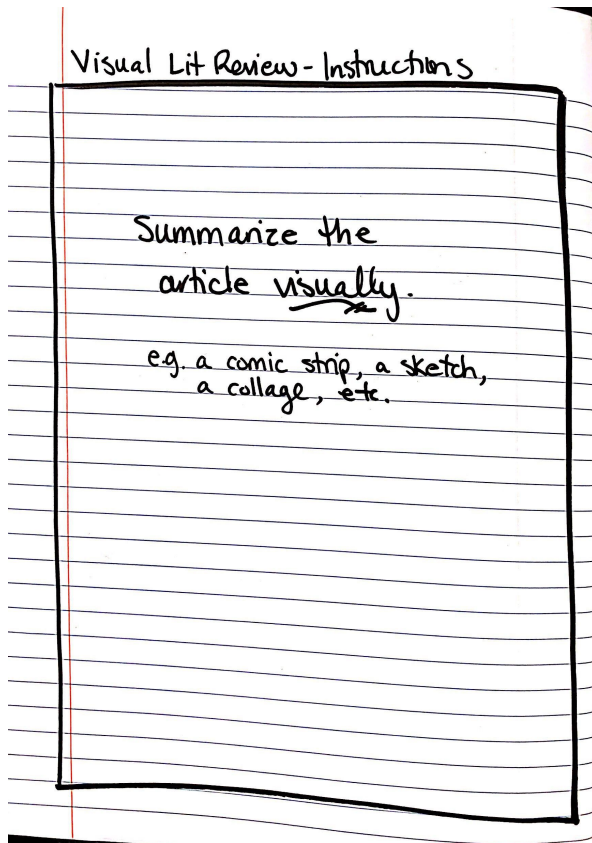 Visual Lit Review - Instructions
Summarize the
article visually.
e.g. a comic strip, a sketch,
a collage, etc.